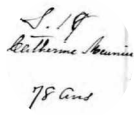 S. 19
Catherine Meunier
78 ans